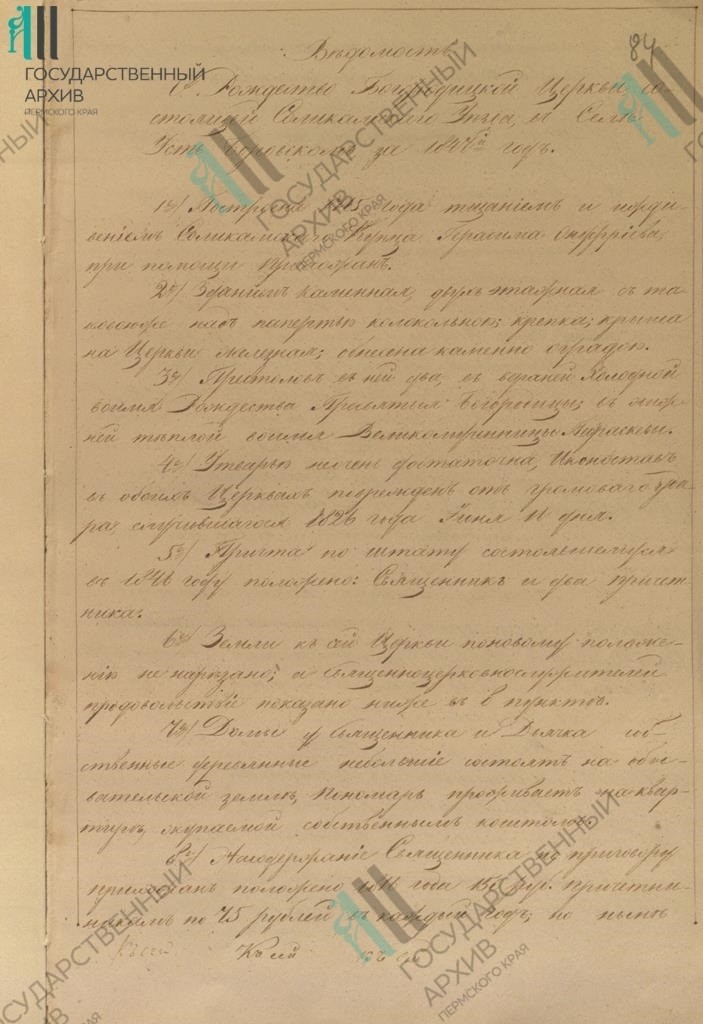 84
ГОСУДАРСТВЕННЫЙ
АРХИВ
ПЕРМСКОГО КРАЯ
Вѣдомость
О Рождество Богородицкой Церкви, со-
стоящей Соликамскаго Уѣзда, въ Селѣ
Усть Боровскомъ за 1847й годъ.
1е) Построена года тщаніемъ и ижди-
веніемъ Соликамскаго Купца Герасима Онуфріева,
при помощи Прихожанъ.
2е) Зданіемъ каменная, двухъ этажная съ та-
ковоюже надъ папертью колокольнею; крепка; крыша
на Церкви железная; обнесена каменно оградою.
3е) Престоловъ въ ней два, въ верхней Холодной
воимя Рождества Пресвятыя Богородицы; въ ниж-
ней теплой воимя Великомученницы Параскевы.
4е) Утварью неочень достаточна, Иконостасъ
въ обоихъ Церквахъ поврежденъ отъ громоваго уда-
ра, случившагося 1826 года Іюня 11 дня.
5е) Причта по штату состоявшемуся
въ 1846 году положено: Священникъ и два причет-
ника.
6е) Земли къ сей Церкви поновому положе-
нію не нарезано; а Священноцерковнослужителей
продовольствіи показано ниже въ 8 пунктѣ.
7е) Домы у Священника и Дьячка соб-
ственные деревянные небольшіе состоятъ на обы-
вательской землѣ, Пономарь проживаетъ на квар-
тирѣ, окупаемой собственнымъ коштомъ.
8е) На содержаніе Священника по приговору
прихожанъ положено года 150 руб. причетни-
камъ по 75 рублей въ каждый годъ; но нынѣ
Къ сей Къ сей къ сей